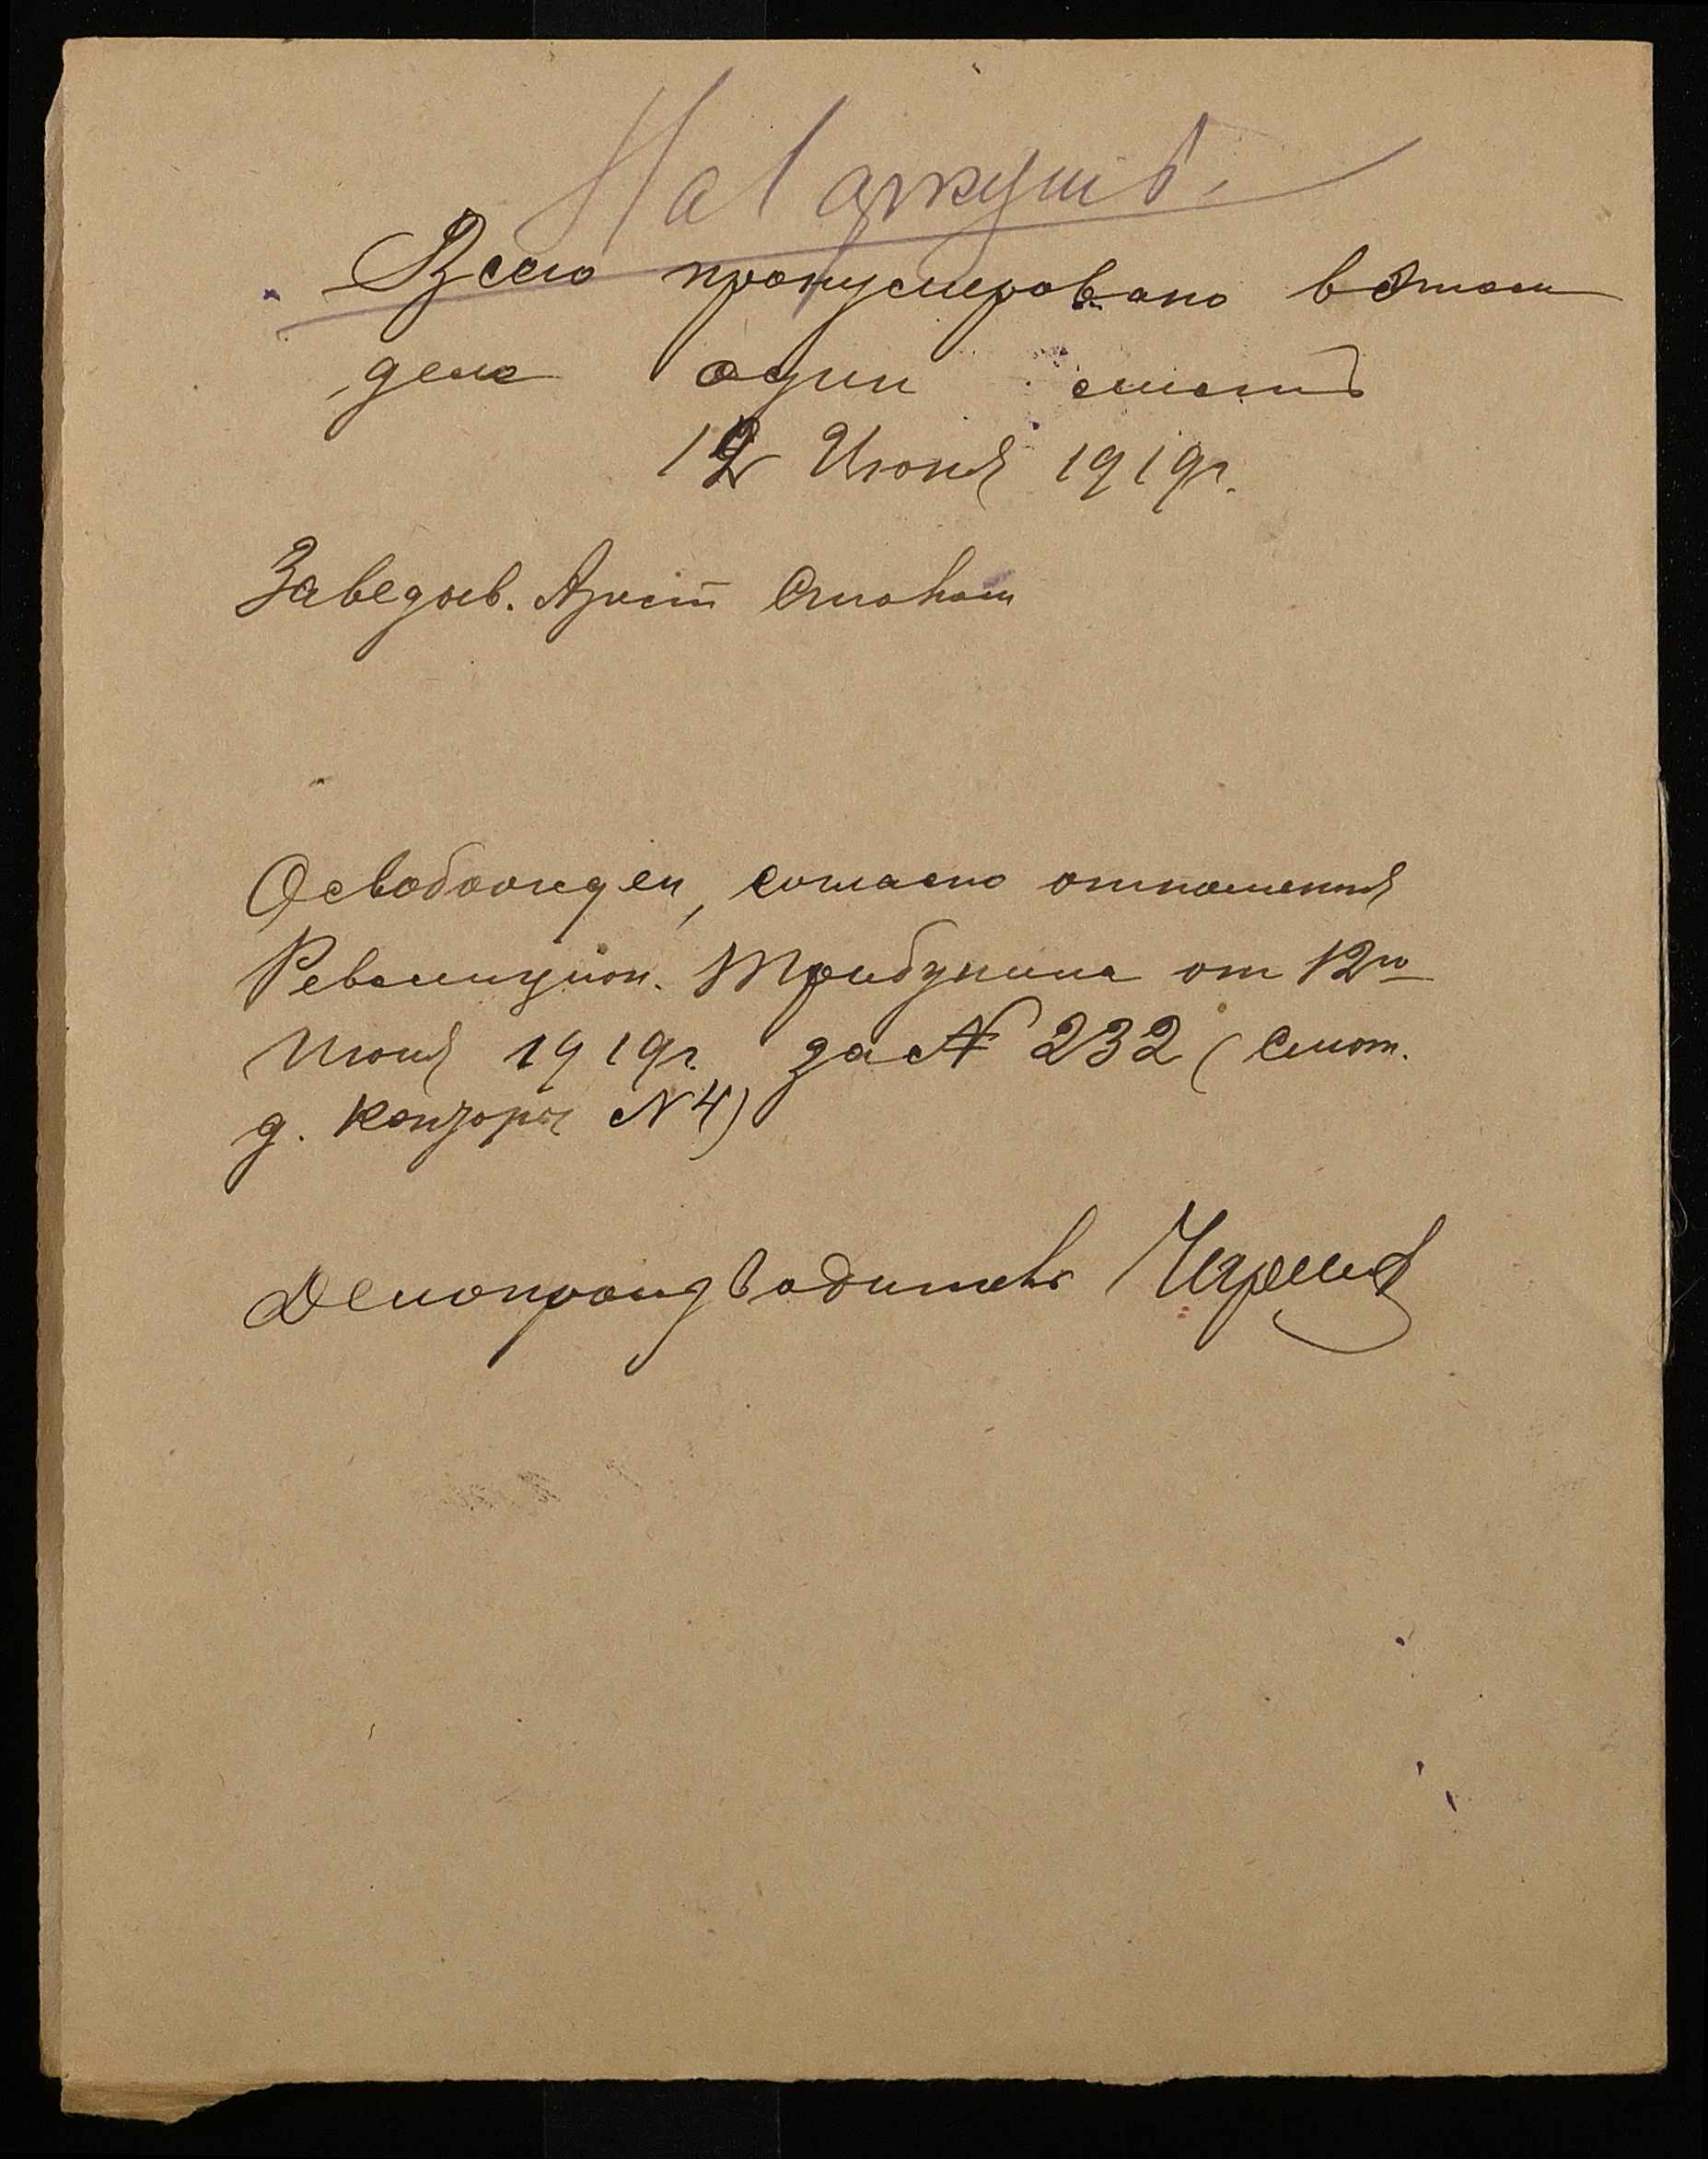 На 1 аркуші.
Всего пронумеровано в этом
деле один листъ
12 Июня 1919г.
Заведыв. Арест
Освобожден, согласно отношения
Революцион. Трибунала от 12го
Июня 1919г. за № 232 (смот.
д. Конторы № 4)
Делопроизводитель